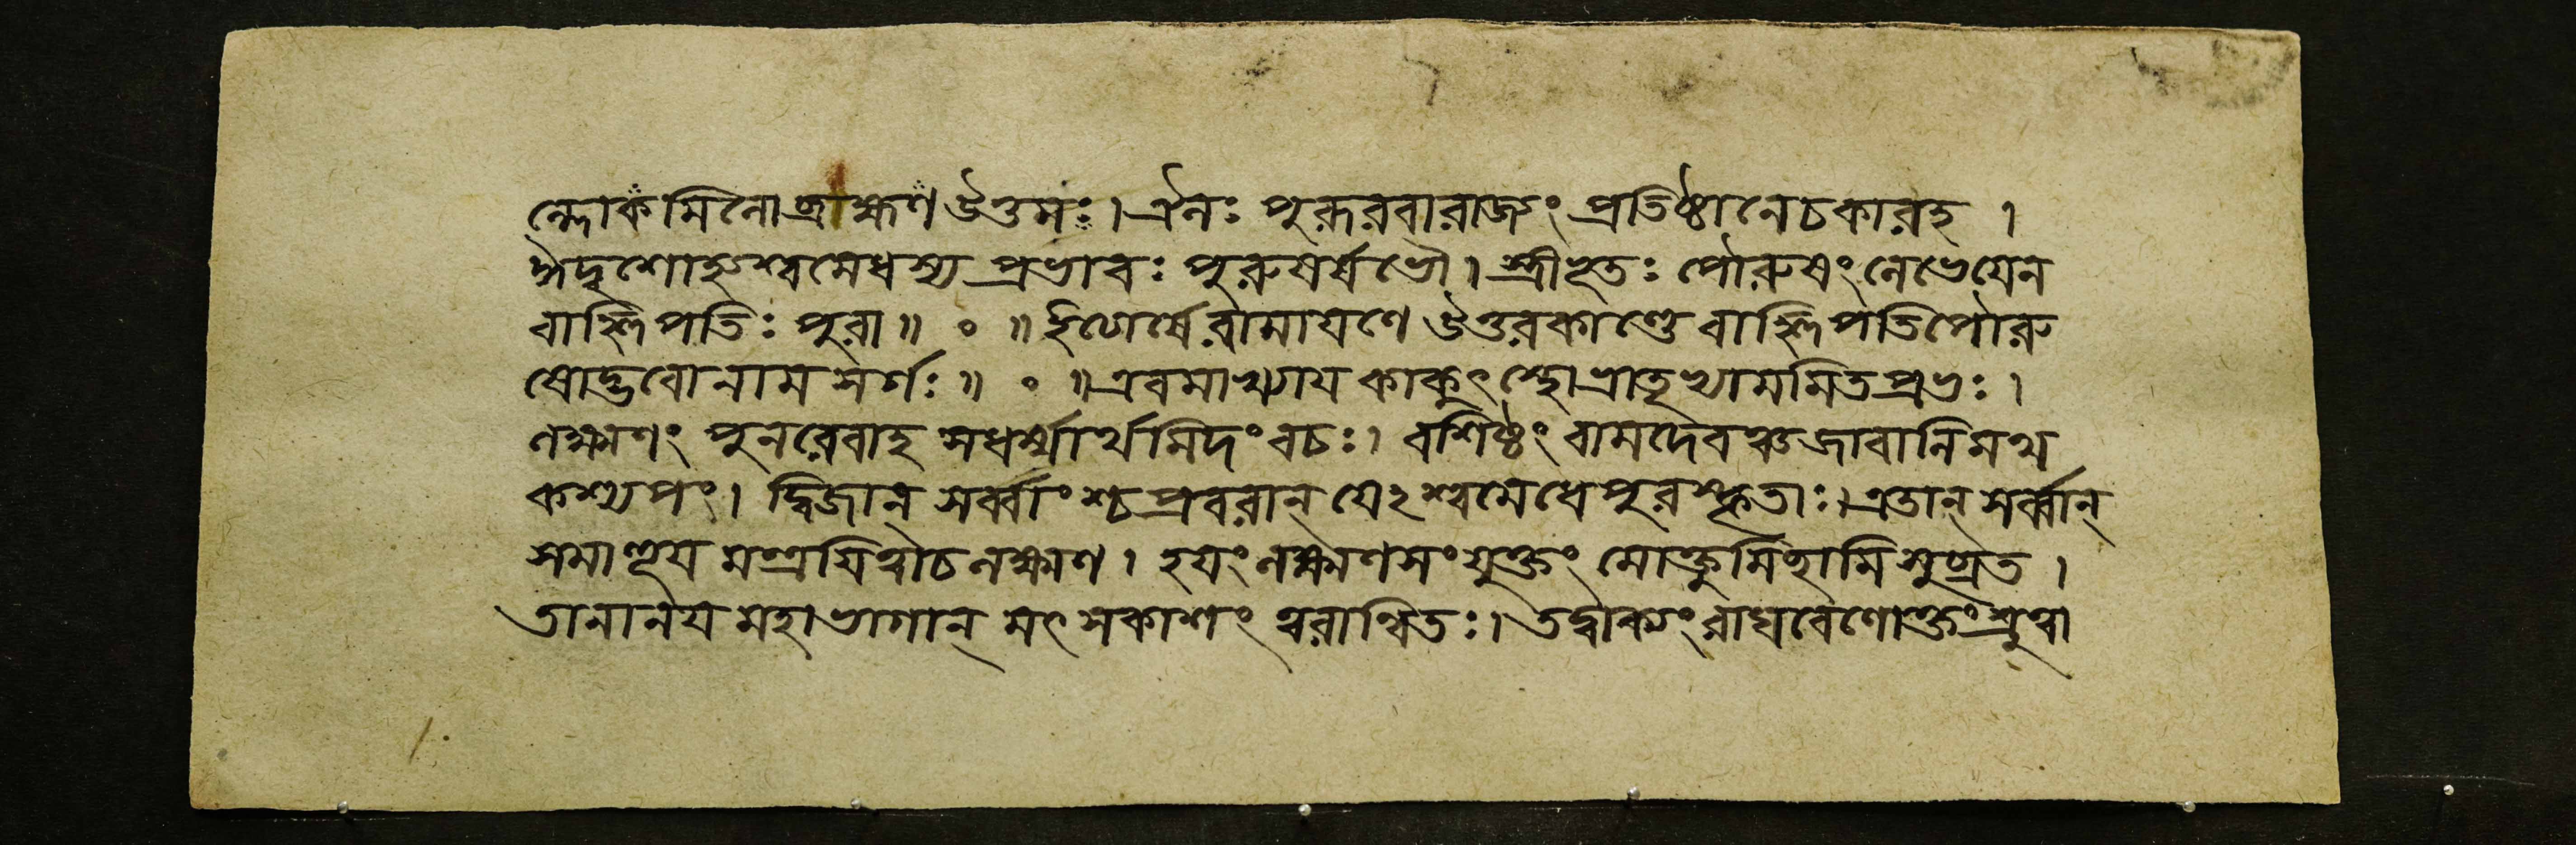 ন্দ্রোকমিনো ব্রাহ্মণ উত্তমঃ। ঐলঃ পুরূরবা রাজ্যং প্রতিষ্ঠানে চকার হ ।
ঈদৃশো হ্যশ্বমেধস্য প্রভাবঃ পুরুষর্ষভৌ । স্ত্রীভূতঃ পৌরুষং লেভে যেন
বাহ্লিপতিঃ পুরা ॥ ॰ ॥ ইত্যার্ষে রামায়ণে উত্তরকাণ্ডে বাহ্লিপতিপৌরু
ষোদ্ভবো নাম সর্গঃ ॥ ॰ ॥ এবমাখ্যায কাকুৎস্থো ভ্রাতৃভ্যামমিতপ্রভঃ ।
লক্ষ্মণং পুনরেবাহ সধর্ম্মার্থমিদং বচঃ। বশিষ্ঠং বামদেবঞ্চ জাবালিমথ
কশ্যপং। দ্বিজান্ সর্ব্বাংশ্চ প্রবরান্ যেঽশ্বমেধে পুরস্কৃতাঃ। এতান্ সর্ব্বান্
সমাহূয মন্ত্রযিত্বা চ লক্ষ্মণ । হযং লক্ষ্মণসংযুক্তং মোক্তুমিচ্ছামি সুব্রত ।
তানানয মহাভাগান্ মৎসকাশং ত্বরান্বিতঃ। তদ্বাক্যং রাঘবেণোক্তং শ্রুত্বা